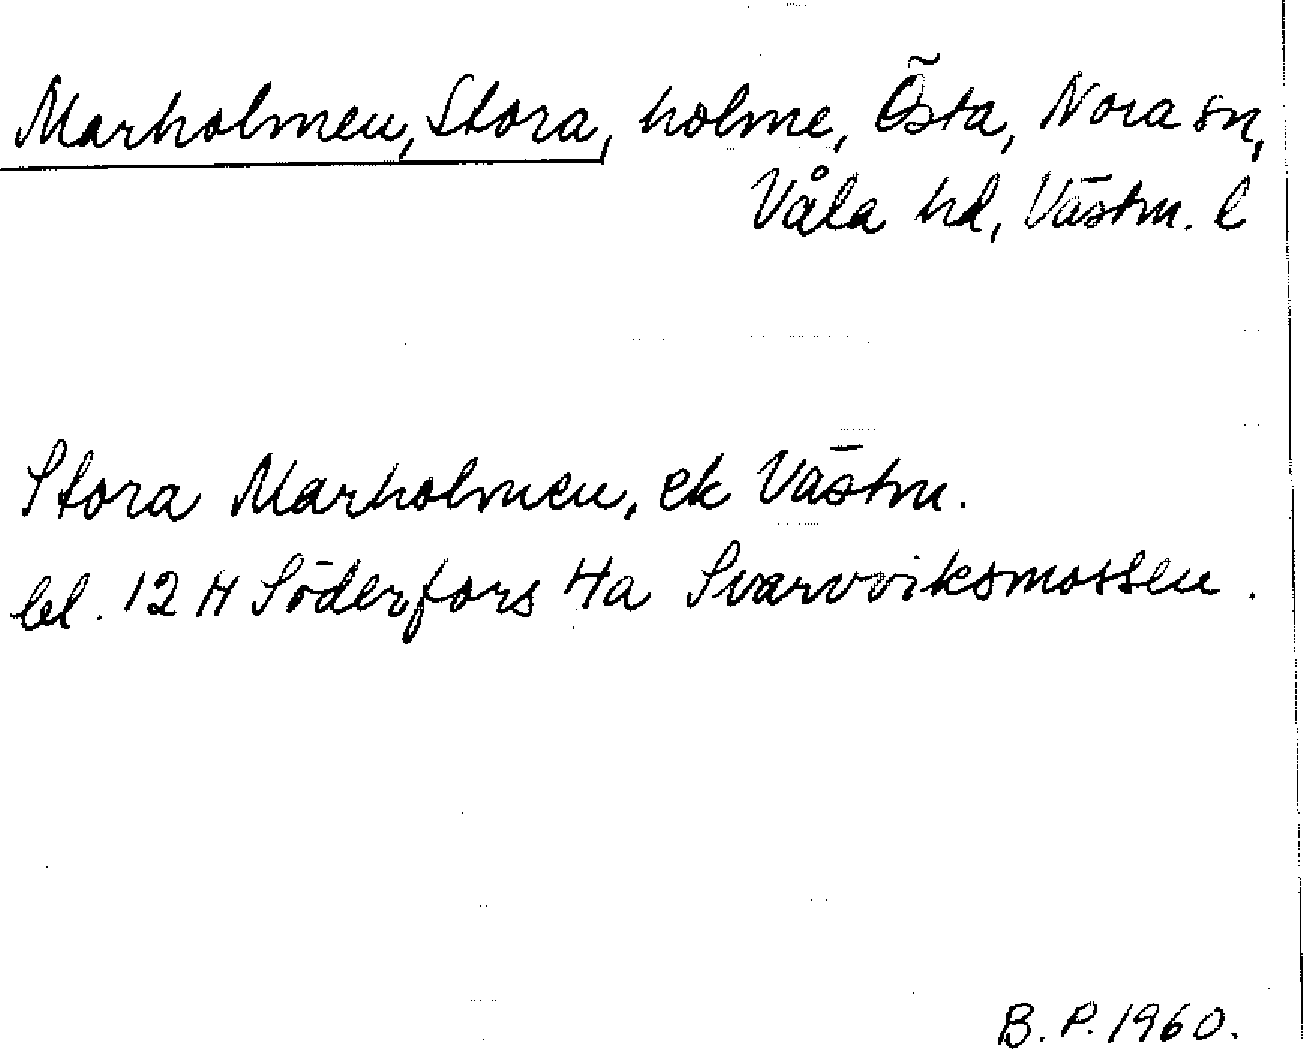 Marholmen, Stora, holme, Östa, Nora sn,
Våla hd, Västm. l
Stora Marholmen, ek Västm.
bl. 12 H Söderfors 4a Svarvviksmossen.
B. P. 1960.